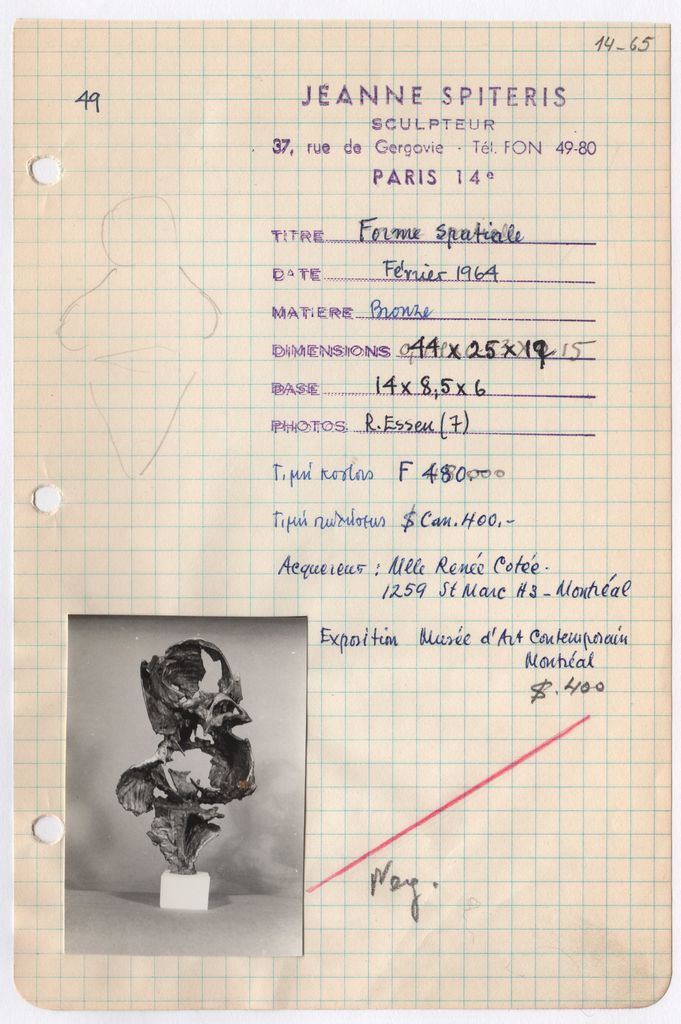 14-65
49
JEANNE SPITERIS
SCULPTEUR
37, rue de Gergovie - Tél. FON 49-80
PARIS 14e
TITRE Forme Spatiale
DATE Février 1964
MATIERE Bronze
DIMENSIONS 44 x 25 x 19 15
BASE 14 x 8,5 x 6
PHOTOS R. Essen (7)
Τιμή κόστους F 480
Τιμή $ Can. 400.-
Acquereur : Mlle Renée Cotée.
1259 St Marc H3 - Montréal
Exposition Musée d'Art Contemporain
Montréal
$. 400
Neg.